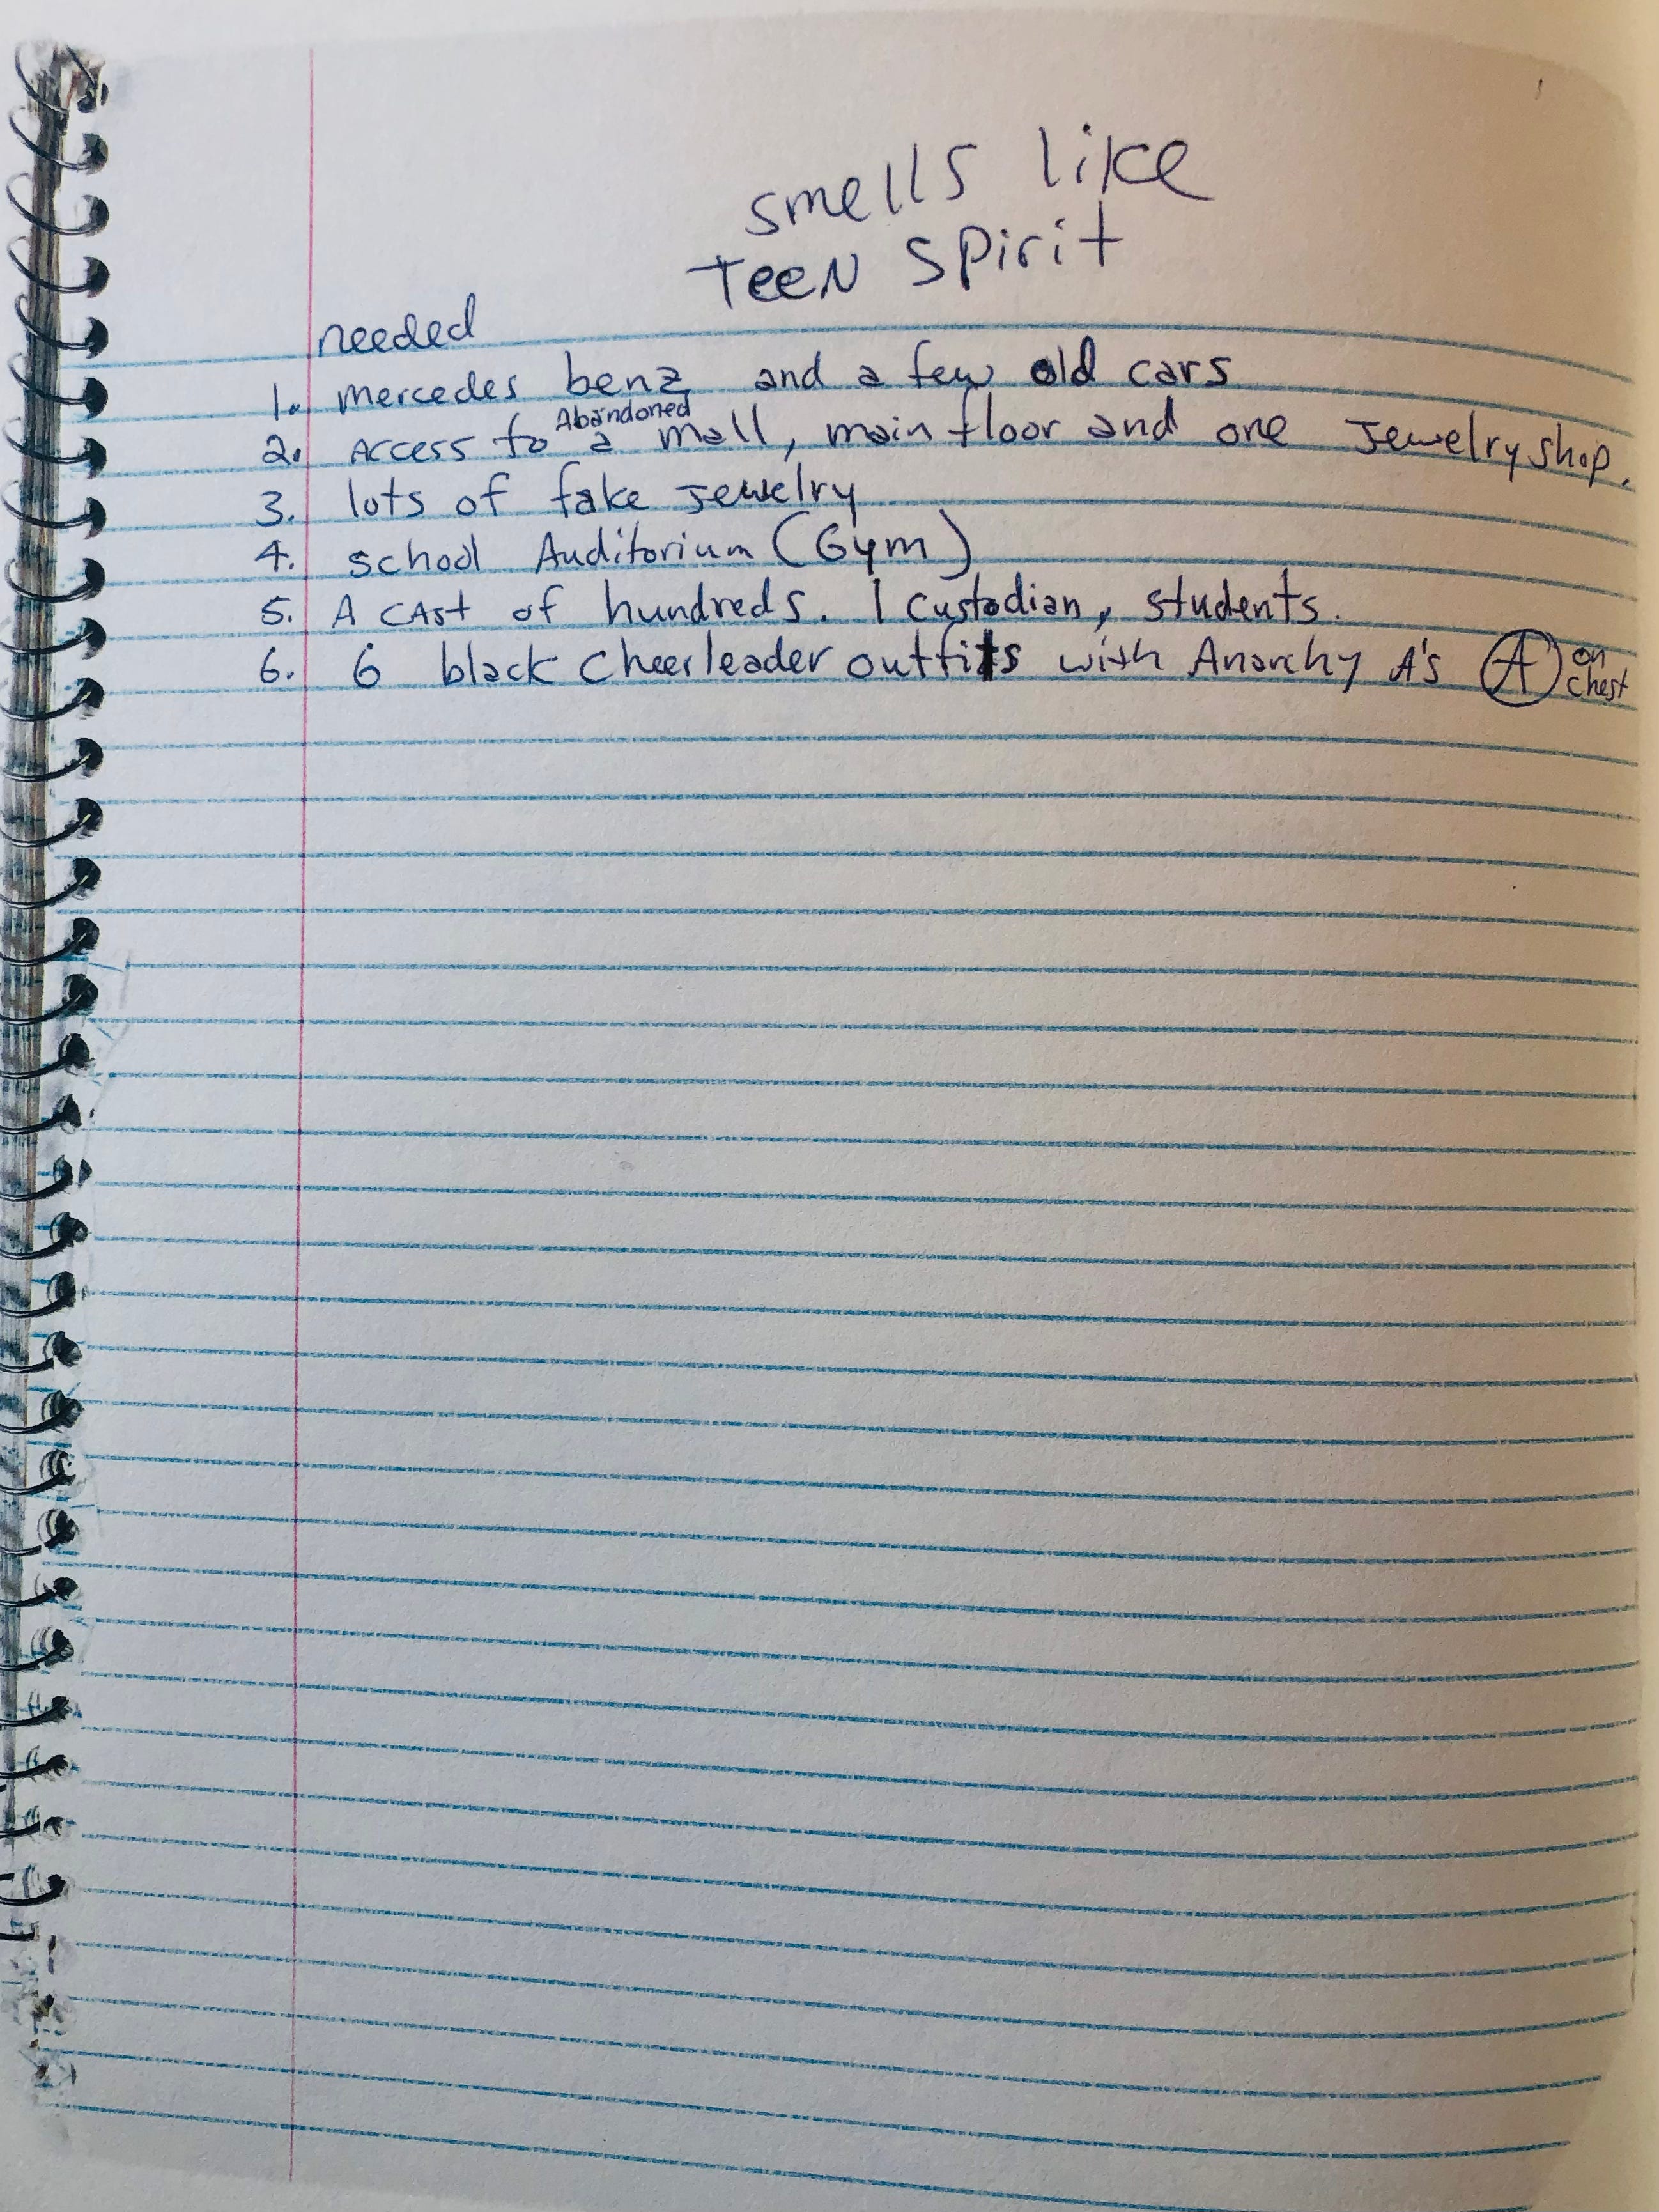 smells like
Teen Spirit
needed
1. mercedes benz and a few old cars
2. Access to a Abandoned mall, main floor and one Jewelry shop.
3. lots of fake Jewelry
4. school Auditorium (Gym)
5. A cAst of hundreds. 1 custodian, students.
6. 6 black Cheerleader outfits with Anarchy A's Ⓐ on chest